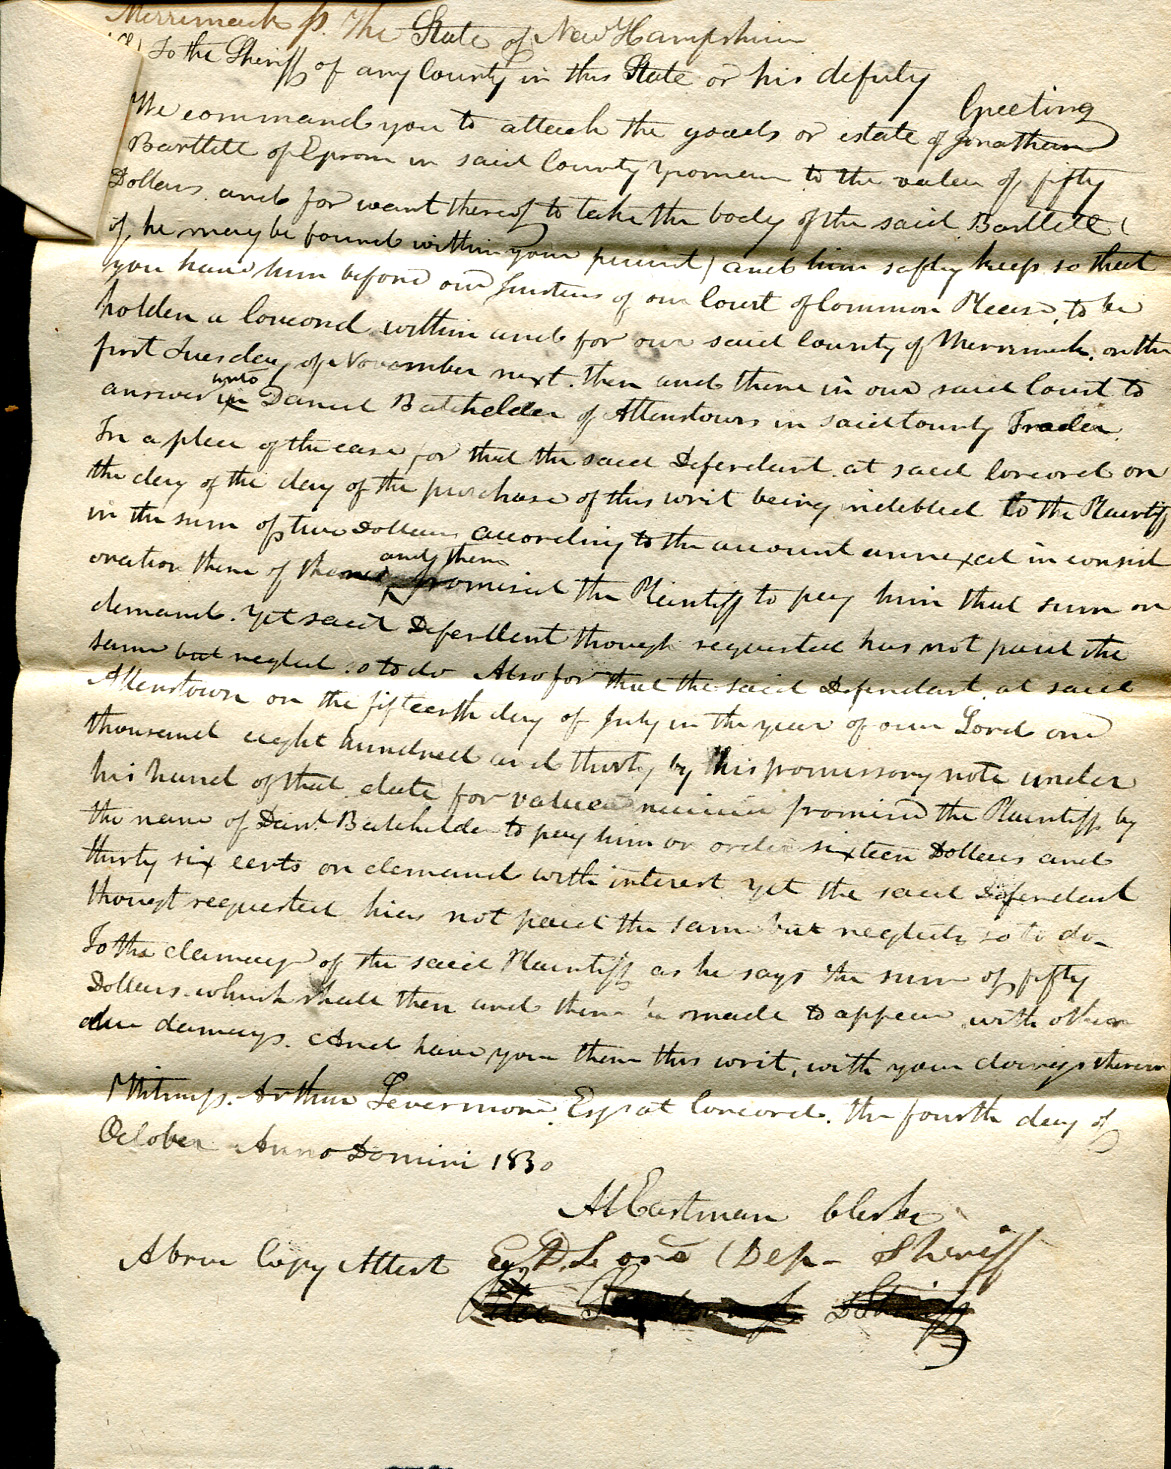 Merrimack ss. The State of New Hampshire
To the Sheriff of any County in this State or his deputy
Greeting
We command you to attach the goods or estate of Jonathan
Bartlett of Epsom in said County Yeoman to the value of fifty
Dollars and for want thereof to take the body of the said Bartlett (
if he may be found within your precinct) and him safely keep so that
you have him before our Justices of our Court of Common Pleas, to be
holden a Concord within and for our said County of Merrimack, on the
first Tuesday of November next. then and there in our said Court to
answer unto Daniel Batchelder of Allenstown in said County Trader.
In a plea of the case for that the said Defendant at said Concord on
the day of the day of the purchase of this writ being indebted to the Plaintiff
in the sum of two Dollars according to the account annexed in consid
eration there of then and there promised the Plaintiff to pay him that sum on
demand. Yet said Defendent though requested has not paid the
same but neglect so to do Also for that the said Defendant at said
Allenstown on the fifteenth day of July in the year of our Lord one
thousand eight hundred and thirty by his promissory note under
his hand of that date for value promised the Plaintiff by
the name of Danl. Batchelder to pay him or order sixteen Dollars and
thirty six cents on demand with interest yet the said Defendant
though requested has not paid the same but neglects so to do
To the damage of the said Plaintiff as he says the sum of fifty
Dollars which shall then and there be made to appear with other
due damages. And have you there this writ, with your doings therein
Witness. Arthur Livermore Esq at Concord. the fourth day of
October Anno Domini 1830
M Eastman Clerk
Above Copy Attest D. Lord (Dep- Sheriff